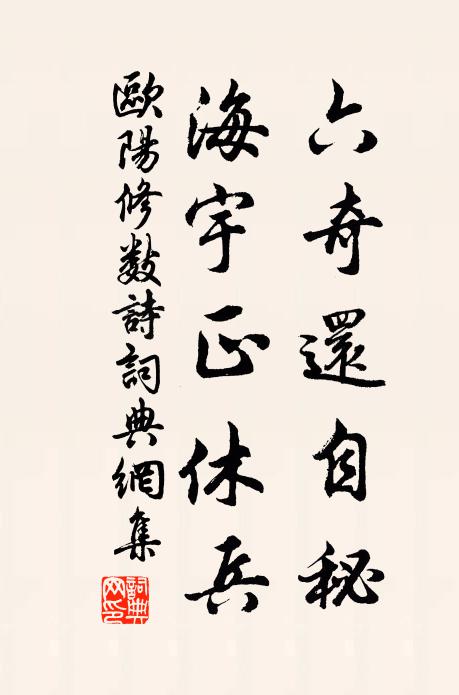 六奇還自秘
海宇正休兵
歐陽修數詩詞典網集
詞典網印